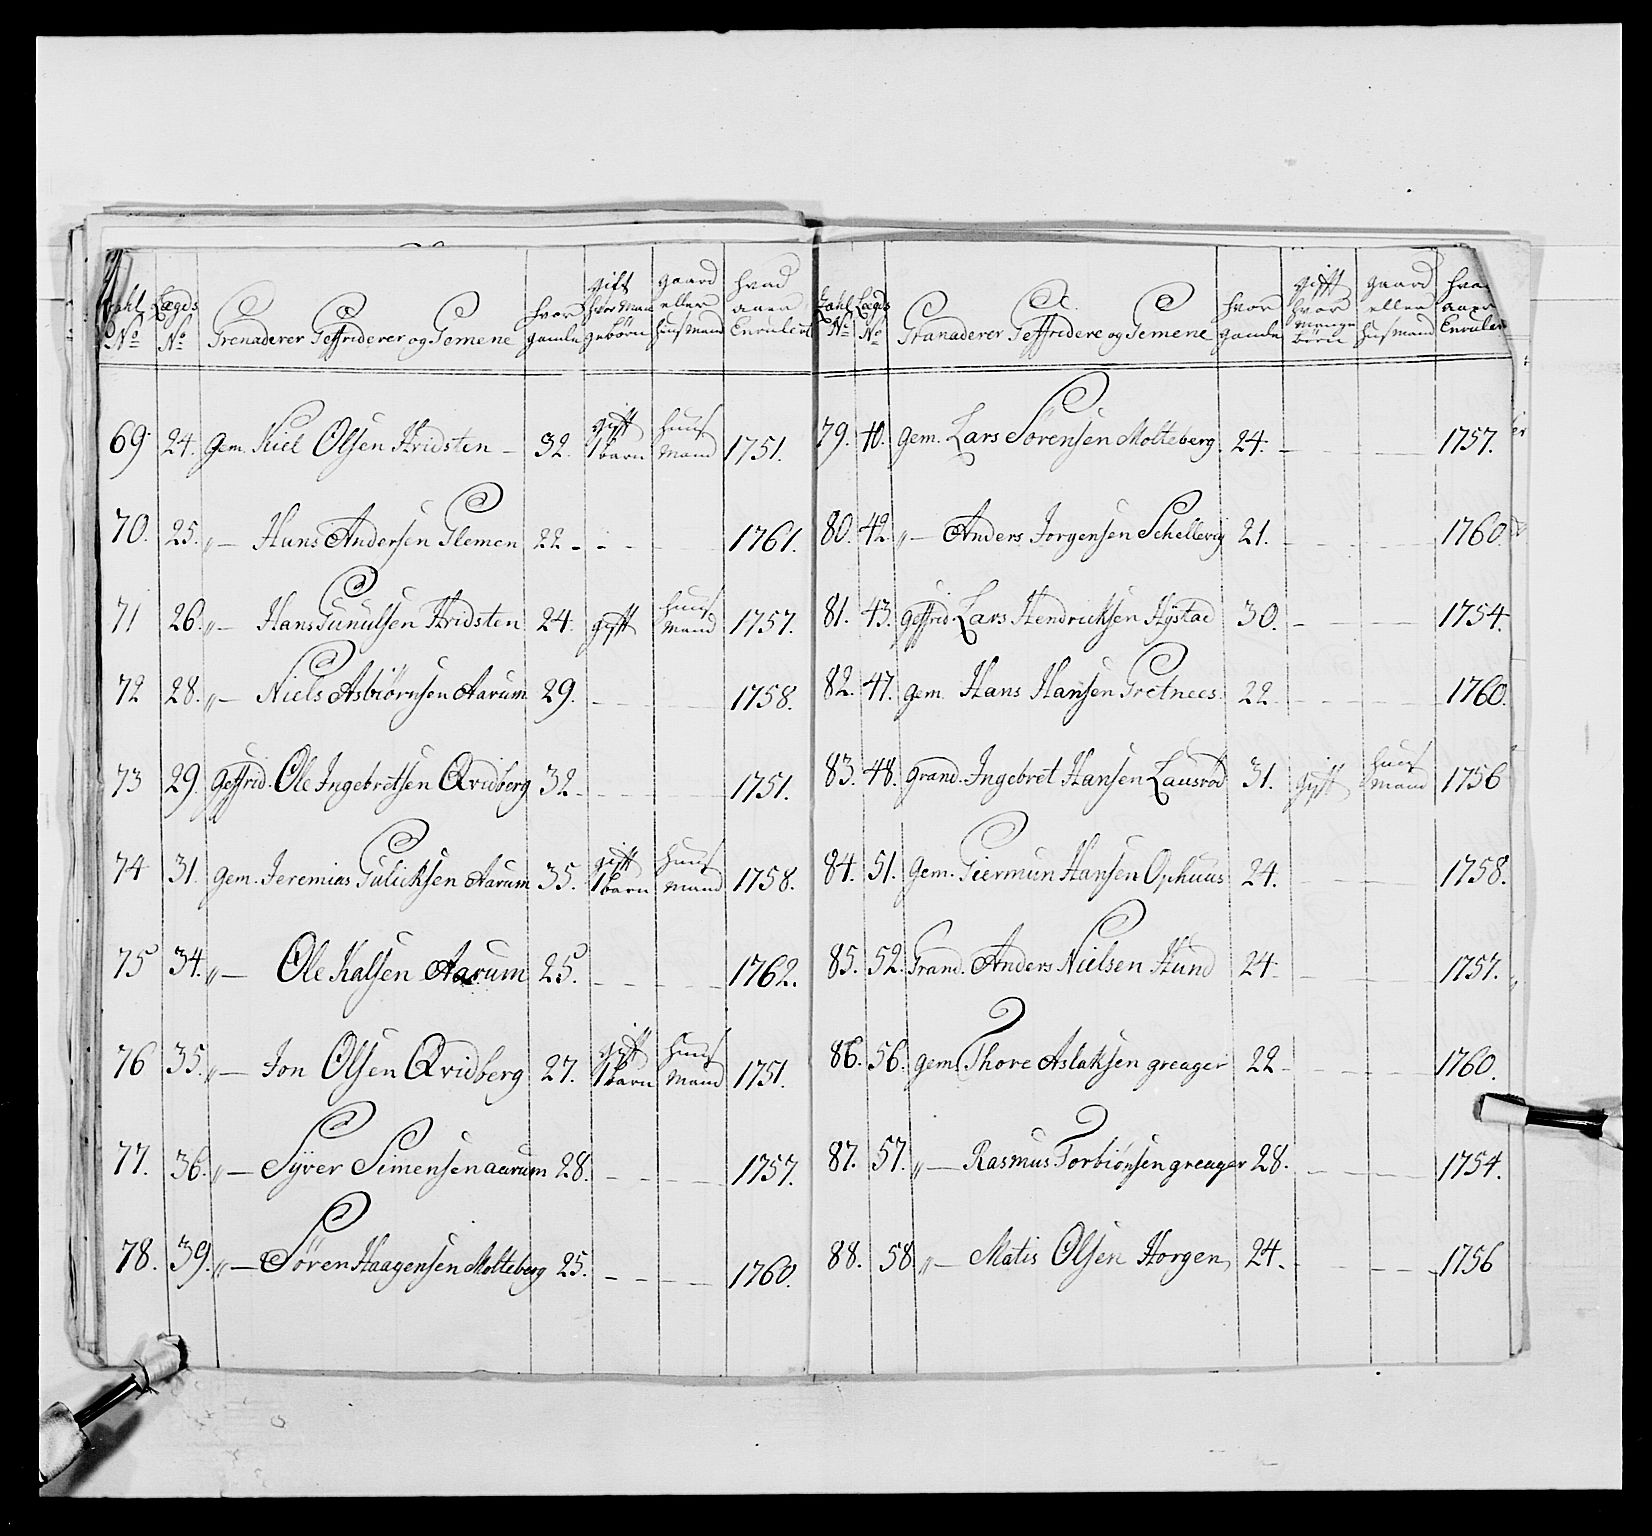 Tahl No | Lægds No | Grenaderer Geffriderer og Gemene | hvor gamle | gift hvor man gebörn | gaard eller huusmand | hvad aaer Enrulert
69 | 24. | gem. Kiel Olsen Hvidsten | 32. | gift 1 barn | huusmand | 1751.
70. | 25. | „ — Hans Andersen Glemen | 22 | - | - | 1761.
71 | 26. | „ — Hans Gunulsen Hvidsten | 24. | gift | huusmand | 1757.
72 | 28. | „ — Niels Asbiörnsen Aarum | 29. | - | - | 1758.
73 | 29. | Geffrid. Ole Ingebretsen Qvidberg | 32 | - | - | 1751.
74 | 31. | gem. Jeremias Gulichsen Aarum | 35. | gift 1 barn | huusmand | 1758.
75 | 34. | „ — Ole Kalsen Aarum | 25. | - | - | 1762.
76 | 35. | „ — Jon Olsen Qvidberg | 27. | gift 1 barn | huusmand | 1751.
77. | 36. | „ — Syver Simensen aarum | 28. | - | - | 1757.
78. | 39. | „ — Sören Haagensen Molteberg | 25. | - | - | 1760.
Tahl No | Lægds No | Granaderer Geffridere og Gemene | hvor gamle | gifft hvor mange börn | gaard eller huusmand | hvad aaer Enruler
79. | 40. | gem. Lars Sörensen Molteberg | 24. | - | - | 1757.
80. | 42. | „ — Anders Jorgensen Schellevig | 21. | - | - | 1760.
81. | 43. | geffrid. Lars Hendricksen Hystad | 30. | - | - | 1754.
82. | 47. | gem. Hans Hansen Gretnees. | 22 | - | - | 1760.
83. | 48. | grand. Ingebret Hansen Lausröd | 31. | gift | huusmand | 1756
84. | 51. | gem. Giermun Hansen Ophuus | 24. | - | - | 1758.
85. | 52. | Grand. Anders Nielsen Hund | 24 | - | - | 1757.
86. | 56. | gem. Thore Aslaksen greager | 22 | - | - | 1760.
87. | 57. | „ — Rasmus Torbiönsen greager | 28. | - | - | 1754.
88. | 58 | „ — Matis Olsen Horgen | 24. | - | - | 1756